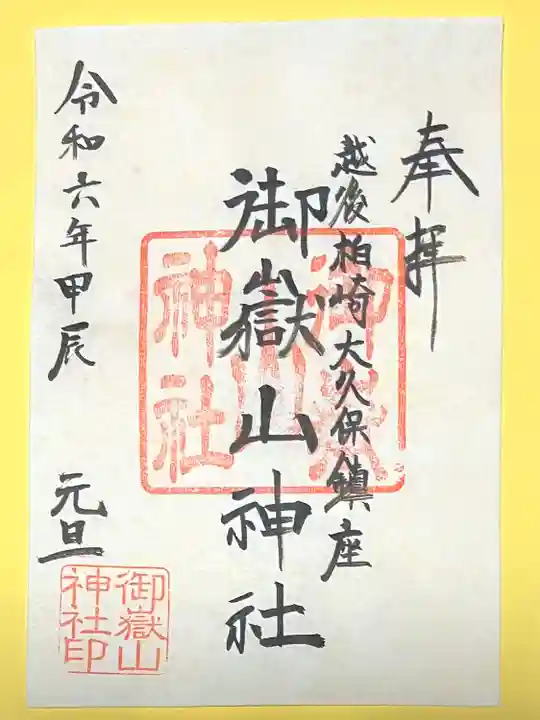 奉拝
越後柏崎大久保鎮座
御嶽山神社
御嶽山神社
令和六年甲辰 元旦
御嶽山神社印